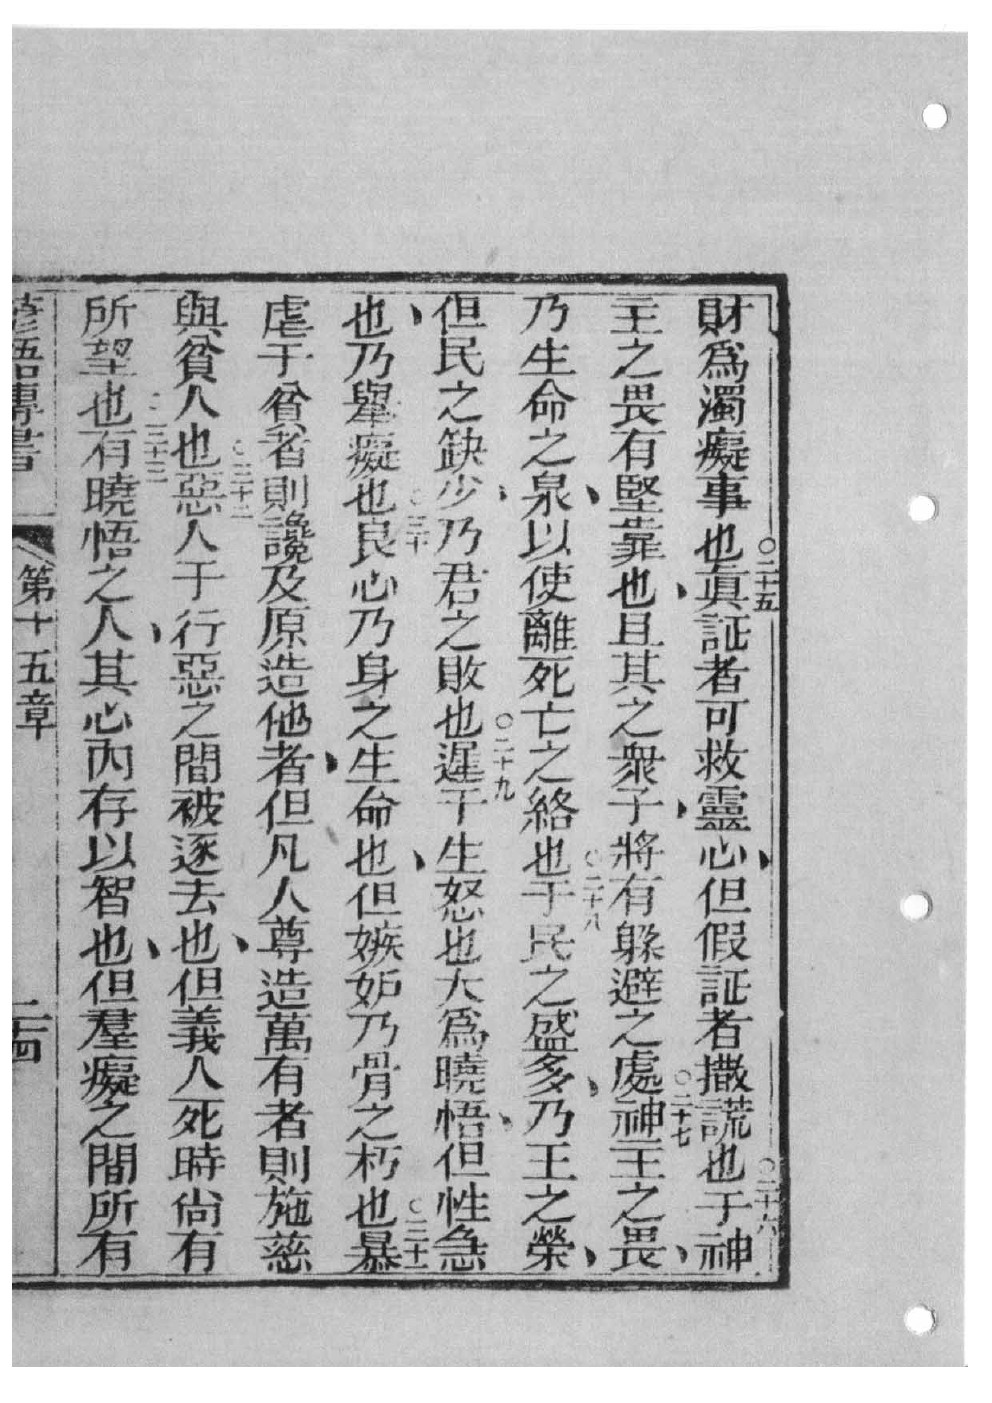 財爲濁癡事也○二十五眞証者可救靈心、但假証者撒謊也○二十六于神
主之畏有堅靠也、且其之衆子、將有躲避之處○二十七神主之畏、
乃生命之泉、以使離死亡之絡也○二十八于民之盛多、乃王之榮、
但民之缺少、乃君之敗也○二十九遲于生怒也大爲曉悟、但性急
也、乃舉癡也○三十良心乃身之生命也、但嫉妒乃骨之朽也○三十一暴
虐于貧者則讒及原造他者、但凡人尊造萬有者則施慈
與貧人也○三十二惡人于行惡之間被逐去也、但義人死時尙有
所望也○三十三有曉悟之人、其心內存以智也、但羣癡之間所有
諺語傳書 第十五章 二十四